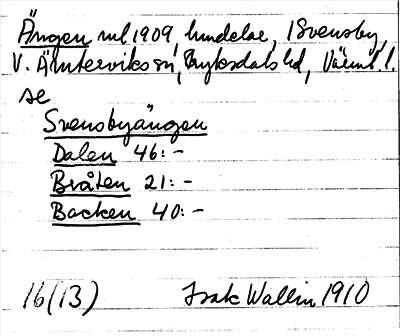 Ängen ml 1909, lundelar, i Svensby,
V. Ämterviks sn, Fryksdals hd, Värml. l.
se
Svensbyängen
Dalen 46:-
Bråten 21:-
Backen 40:-
16(13) Isak Wallin 1910